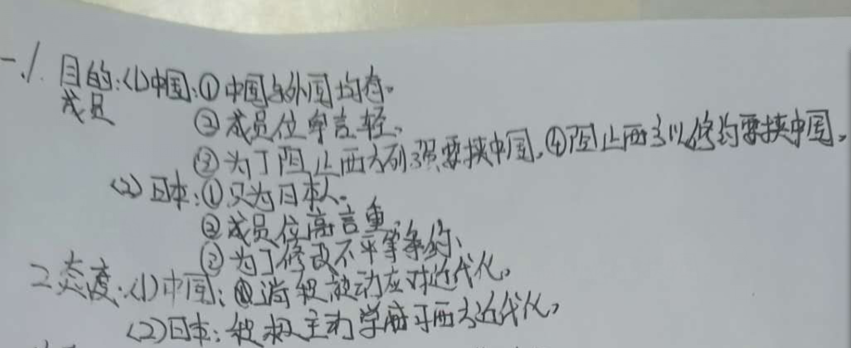 一、1. 目的:(1)中国:①中国与外国均有。
成员
②成员位卑言轻、
③为了阻止西方列强要挟中国,④阻止西方以修约要挟中国。
(2)日本:①只为日本人。
②成员位高言重、
③为了修改不平等条约、
2.态度:(1)中国:消极被动应对近代化。
(2)日本:积极主动学习西方近代化,